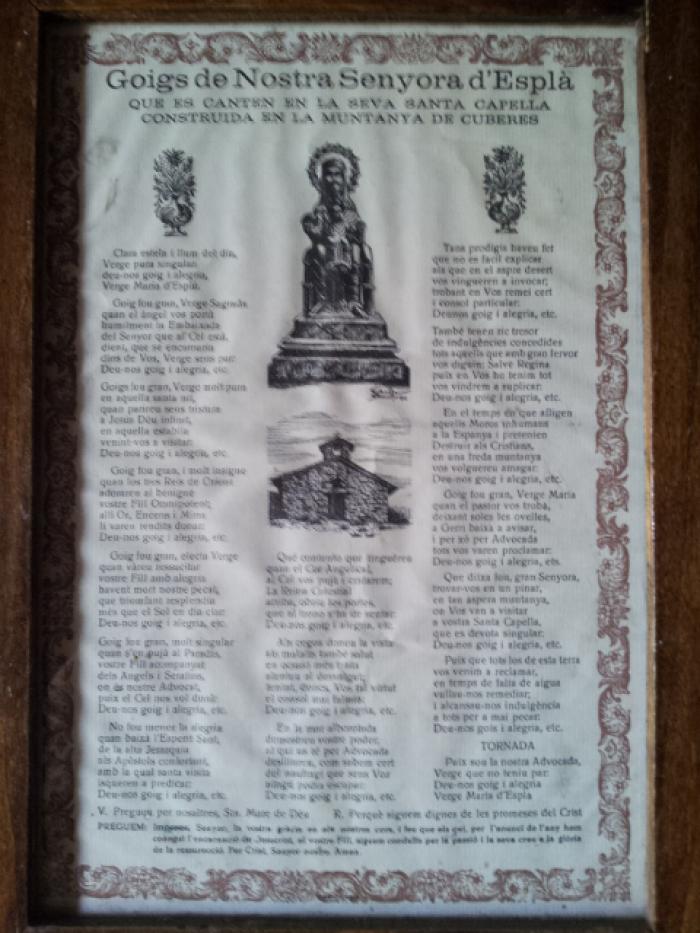 Goigs de Nostra Senyora d'Esplà
QUE ES CANTEN EN LA SEVA SANTA CAPELLA
CONSTRUIDA EN LA MUNTANYA DE CUBERES
Clara estela i llum del dia,
Verge pura singular:
deu-nos goig i alegria,
Verge Maria d'Esplà.
Goig fou gran, Verge Sagrada
quan el àngel vos portà
humilment la Embaixada
del Senyor que al Cel està,
dient, que se encarnaria
dins de Vos, Verge sens par:
Deu-nos goig i alegria, etc.
Goigs fou gran, Verge molt pura
en aquella santa nit,
quan parireu sens tristura
a Jesus Deu infinit,
en aquella establia
venint-vos a visitar:
Deu-nos goig i alegria, etc.
Goig fou gran, i molt insigne
quan los tres Reis de Orient
adoraren al benigne
vostre Fill Omnipotent;
allí Or, Encens i Mirra
li varen rendits donar:
Deu-nos goig i alegria, etc.
Goig fou gran, electa Verge
quan vàreu ressucitar
vostre Fill amb alegria
havent mort nostre pecat,
que triomfant resplendia
més que el Sol en dia clar:
Deu-nos goig i alegria, etc.
Goig fou gran, molt singular
quan s'en pujà al Paradís,
vostre Fill acompanyat
dels Angels i Serafins,
on és nostre Advocat,
puix el Cel nos vol donar:
Deu-nos goig i alegria, etc.
No fou menor la alegria
quan baixà l'Esperit Sant,
de la alta Jerarquia
als Apòstols confortant,
amb la qual santa visita
isqueren a predicar:
Deu-nos goig i alegria, etc.
Qué contento que tinguéreu
quan el Cor Angelical,
al Cel vos pujà i
La Reina Celestial
les portes,
que el
Deu-nos goig i alegria, etc.
Als cegos doneu la vista
als malalts també salut
en
Vos tal virtut
el consol
Deu-nos goig i alegria, etc.
En la mar alborotada
demostreu vostre poder,
al qui us té per Advocada
deslliureu, com sabem cert
del naufragi que sens Vos
ningú podia escapar:
Deu-nos goig i alegria, etc.
Tans prodigis haveu fet
que no es facil explicar
als que en el aspre desert
vos vingueren a invocar;
trobant en Vos remei cert
i consol particular:
Deu-nos goig i alegria, etc.
També teneu ric tresor
de indulgències concedides
tots aquells que amb gran fervor
vos diguin: Salve Regina
puix en Vos ho tenim tot
vos vindrem a suplicar:
Deu-nos goig i alegria, etc.
En el temps en que afligen
aquells Moros inhumans
a la Espanya i pretenien
Destruir als Cristians,
en una freda muntanya
vos volguereu amagar:
Deu-nos goig i alegria, etc.
Goig fou gran, Verge Maria
quan el pastor vos trobà,
deixant soles les ovelles,
a Gerri baixà a avisar,
i per xò per Advocada
tots vos varen proclamar:
Deu-nos goig i alegria, ets.
Que ditxa fou, gran Senyora,
trovar-vos en un pinar,
en tan aspera muntanya,
on Vos van a visitar
a vostra Santa Capella,
que es devota singular:
Deu-nos goig i alegria, etc.
Puix que tots los de esta terra
vos venim a reclamar,
en temps de falta de aigua
vullau-nos remediar;
i alcansau-nos indulgència
a tots per a mai pecar:
Deu-nos gois i alegria, etc.
TORNADA
Puix sou la nostra Advocada,
Verge que no teniu par:
Deu-nos goig i alegria
Verge Maria d'Espla
V. Pregueu per nosaltres, Sta. Mare de Déu
R. Perquè siguem dignes de les promeses del Crist
PREGUEM: Senyor, la vostra gràcia en els nostres cors, i feu que els qui, per l'anunci de l'àngel hem
conegut l'encarnació de Jesucrist, el vostre Fill, siguem conduïts per la passió i la seva creu a la glòria
de la resurrecció. Per Crist, Senyor nostre. Amen.